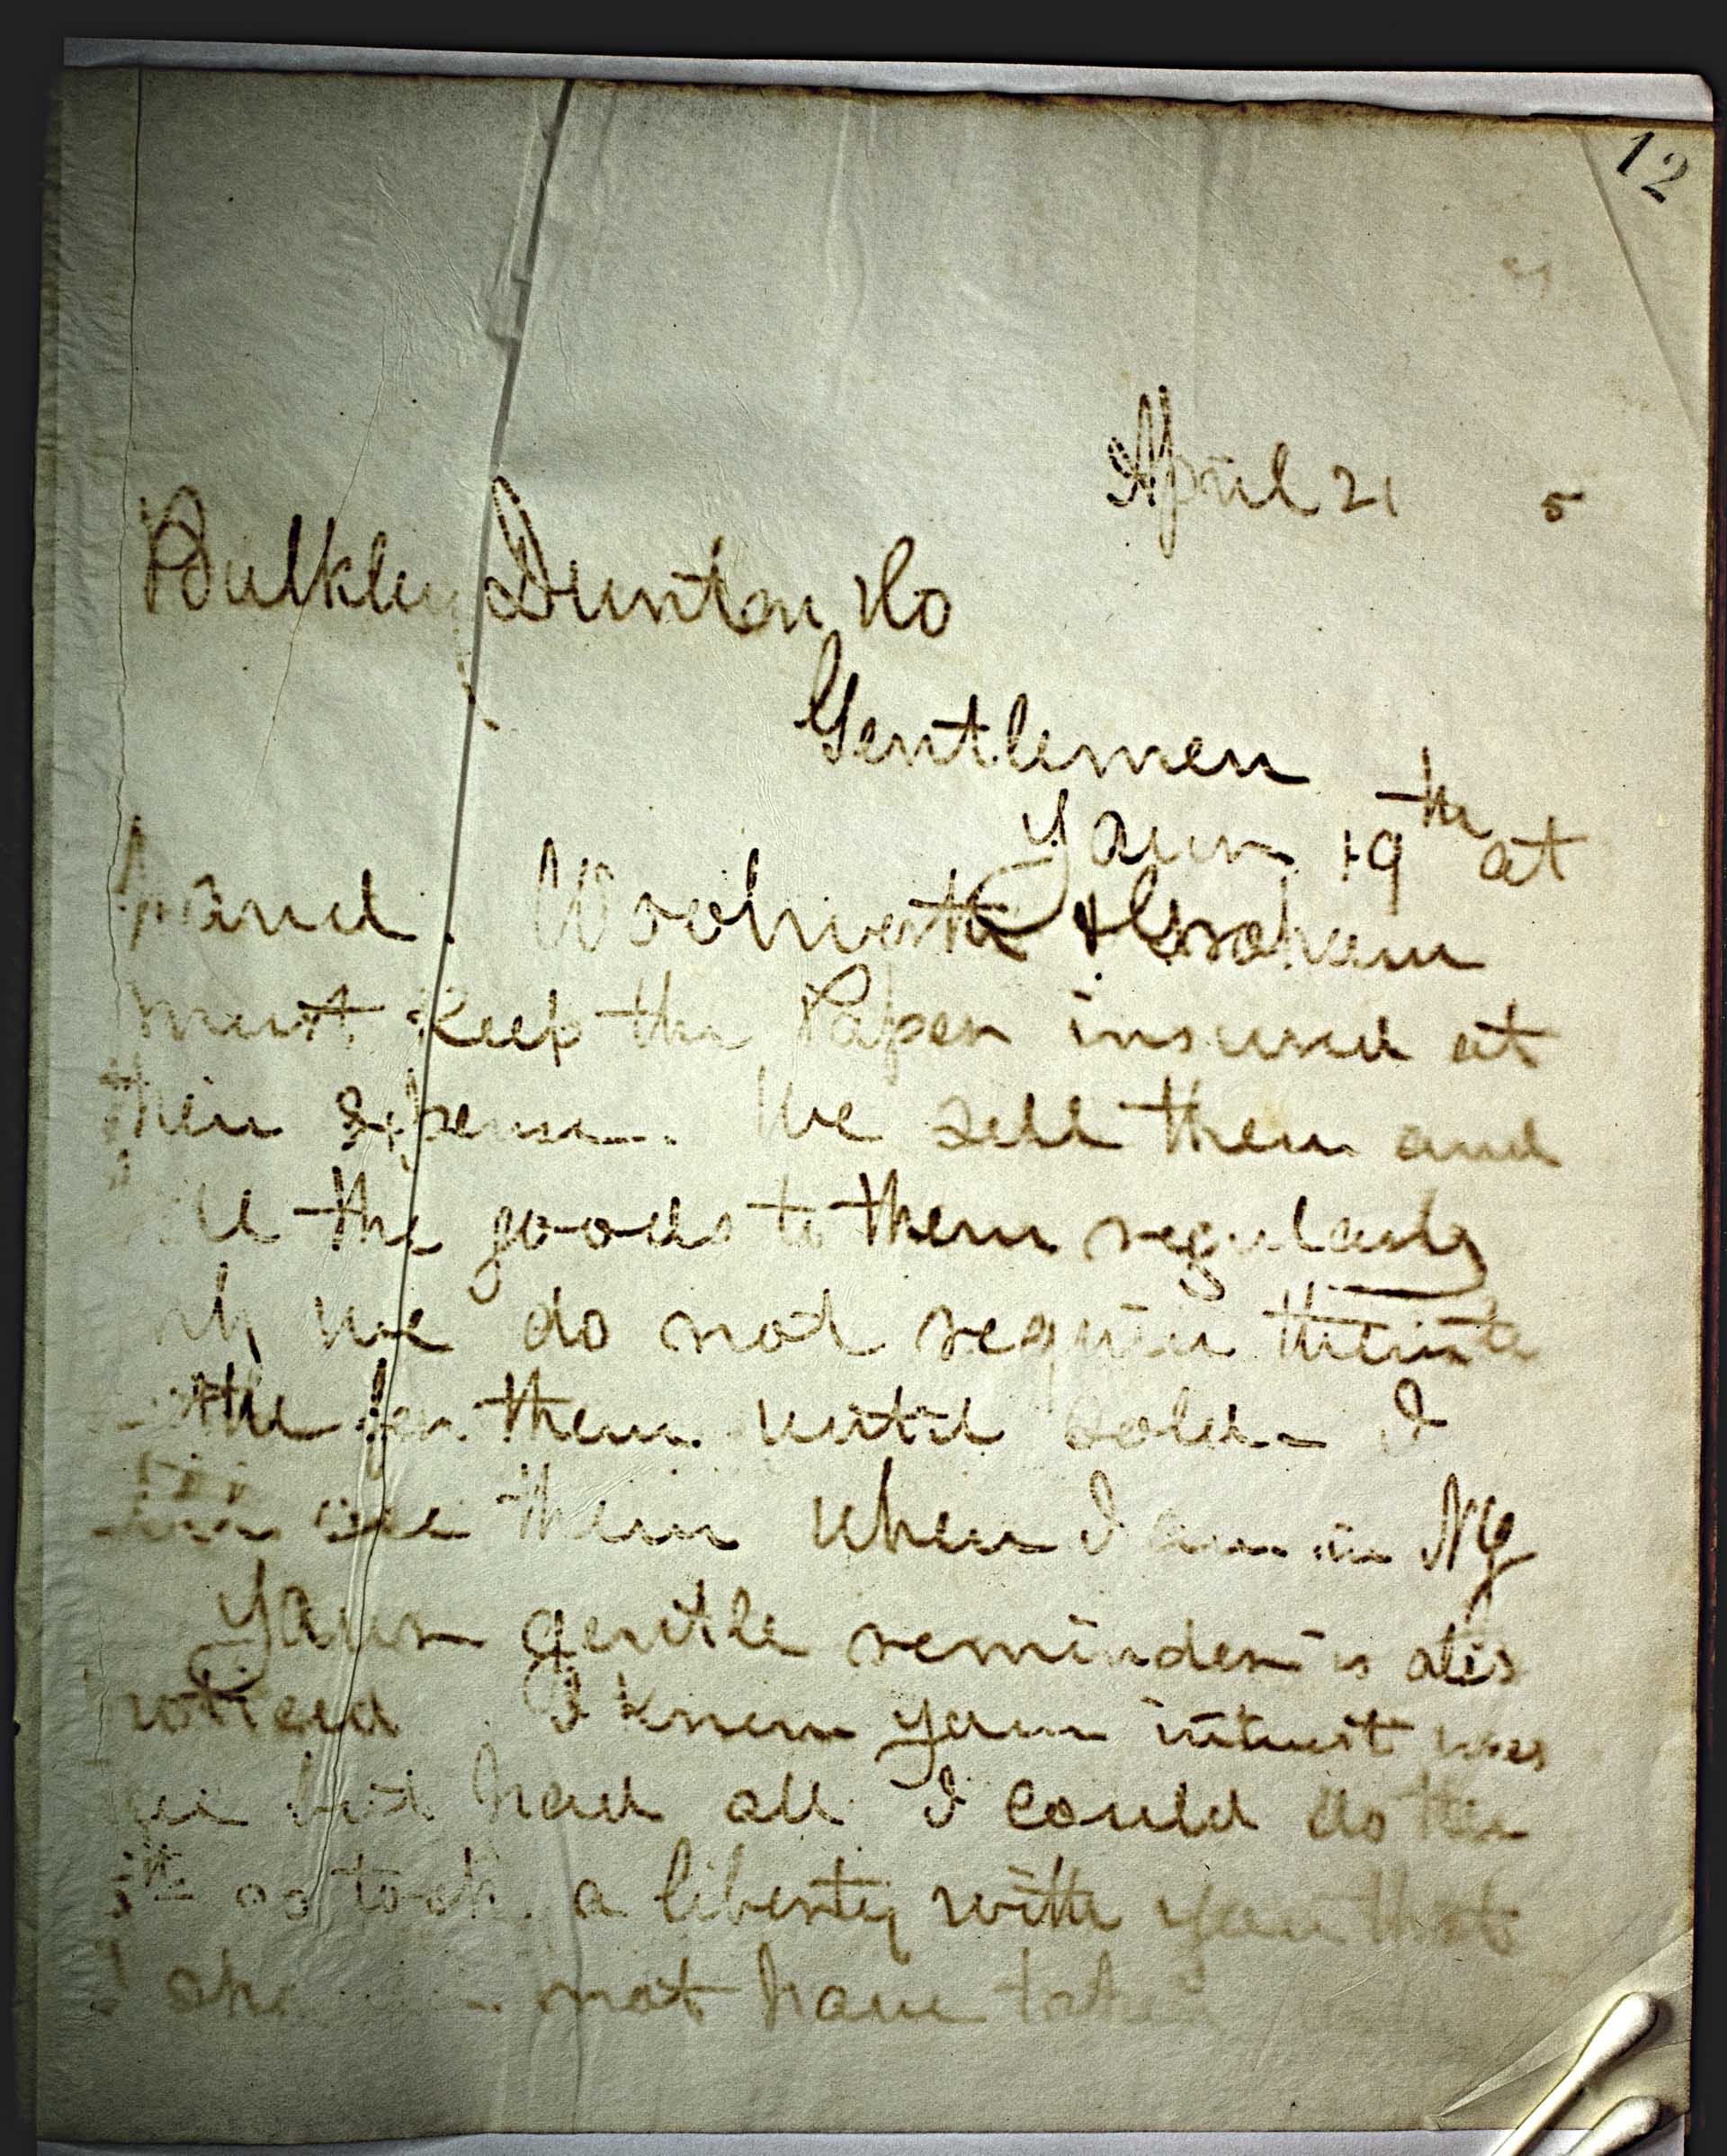 12
April 21 5
Bulkley Dunton & Co
Gentlemen
Yours 19th at
hand. Woolworth & Graham
must keep the Paper insured at
their Expense. We sell them and
the goods to them regularly
only we do not require them to
settle for them until sold. I
see them when I am in NY
Your gentle reminder is also
noticed I knew your interest was
due but had all I could do the
5th so took a liberty with you that
I not have taken